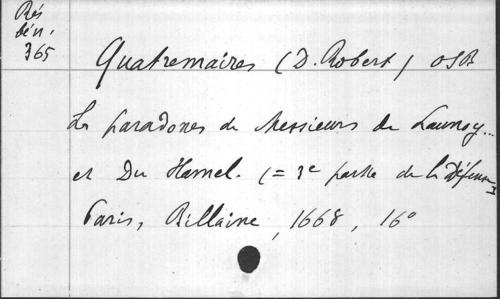 Rés
bén.
365
Quatremaires (D. Robert) OSB
Les paradoxes de Messieurs de Launoy...
et Du Hamel. (= 3e partie de la Défense
Paris, Billaine, 1668, 16°